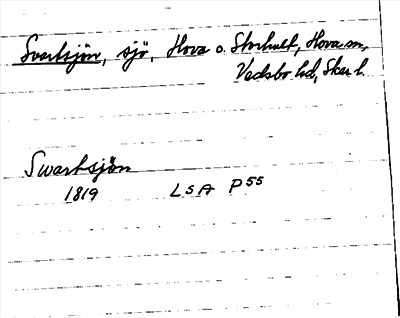 Svartsjön, sjö, Hova o. Storhult, Hova sn,
Vadsbo hd, Skar. l.
Swartsjön
1819 LSA P55